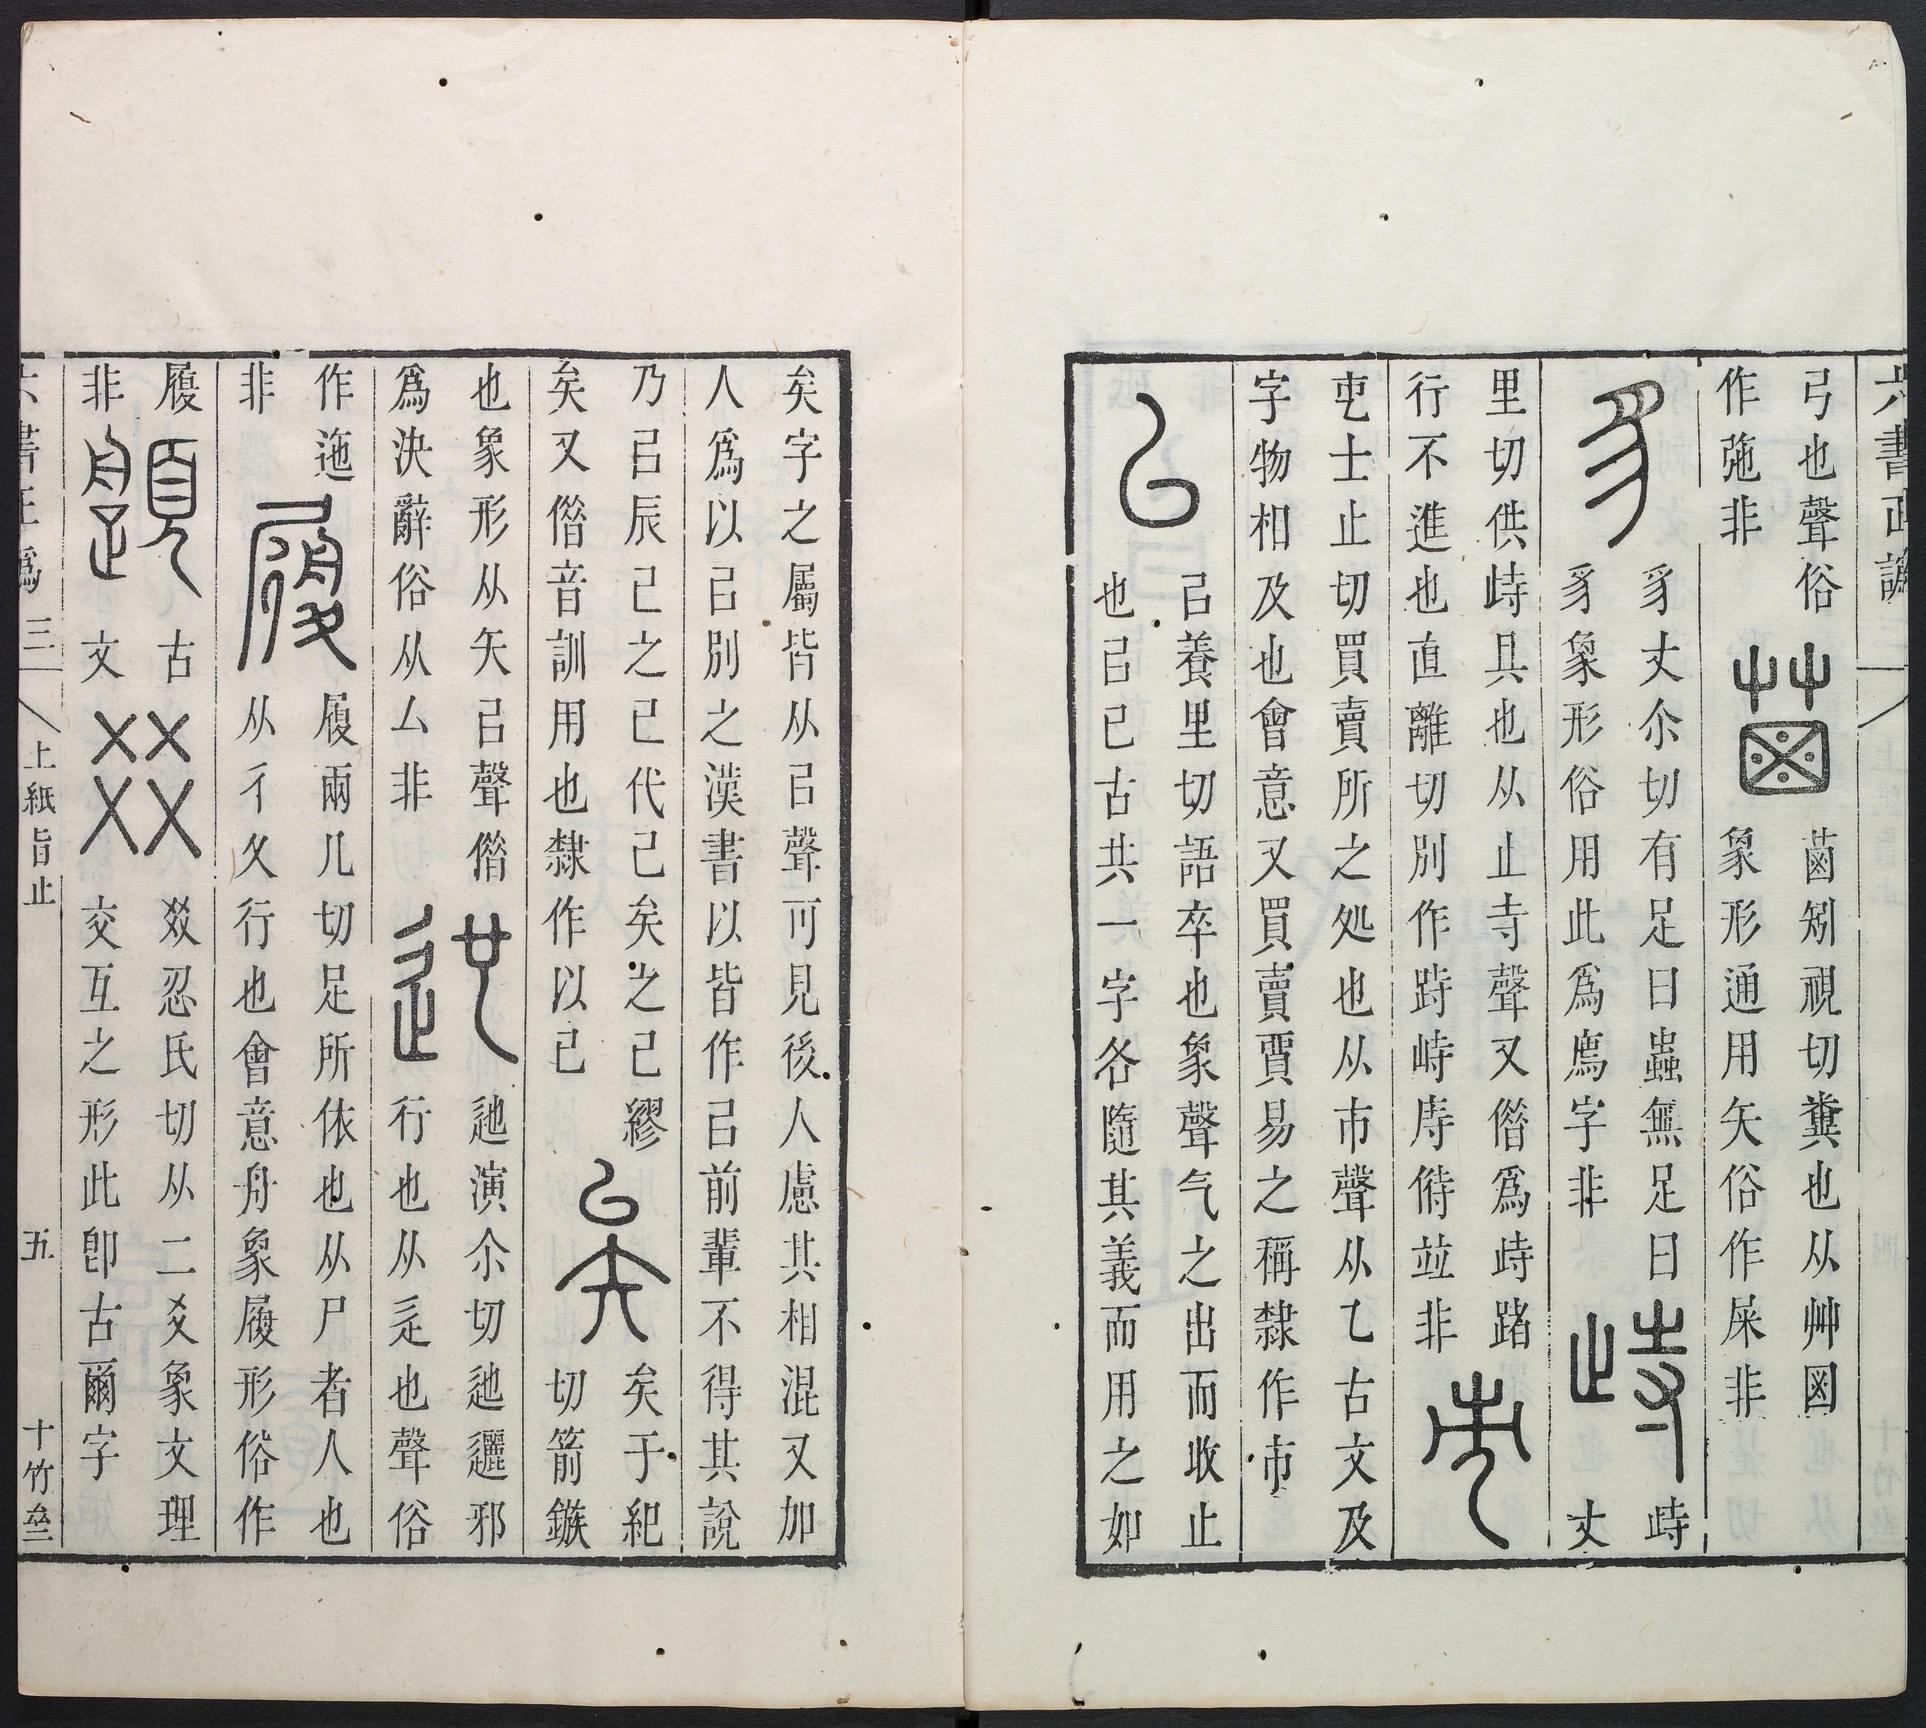 六書正譌
弓也聲俗
作弛非
矧視切糞也从艸
象形通用矢俗作屎非
豸丈尒切有足曰蟲無足曰
豸象形俗用此為廌字非
歭
丈
里切供歭具也从止寺聲又偺爲歭躇
行不進也直離切別作跱峙庤偫竝非
士止切買賣所之処也从市聲从乁古文及
字物相及也會意又買賣貿易之稱隸作市
㠯養里切語卒也象聲气之出而收止
也㠯已古共一字各隨其義而用之如
矣字之屬皆从㠯聲可見後人慮共相混又加
人爲以㠯別之漢書以皆作㠯前輩不得其說
乃㠯辰已之已代已矣之已繆
矣又偺音訓用也隸作以已
矣于紀
切箭鏃
也象形从矢㠯聲偺
爲決辭俗从厶非
迆演尒切迆邐邪
行也从辵也聲俗
作迤
非
履兩几切足所依也从尸者人也
从彳夊行也會意舟象履形俗作
履
非
古
文
㸚忍氏切从二爻象文理
交互之形此卽古爾字
六書正譌 三 上紙旨止 五 十竹